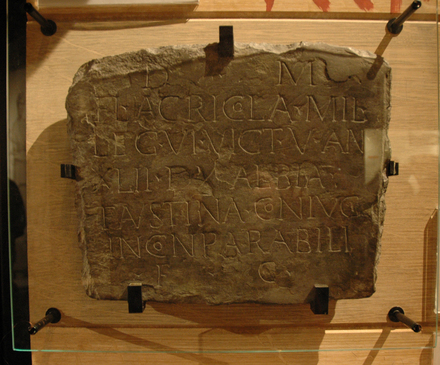 D M
FL AGRICOLA·MIL
LEG·VI·VICT·V·AN
XLII·D·X·ALBIA·
FAVSTINA·CONIVGI
INCONPARABILI
F C